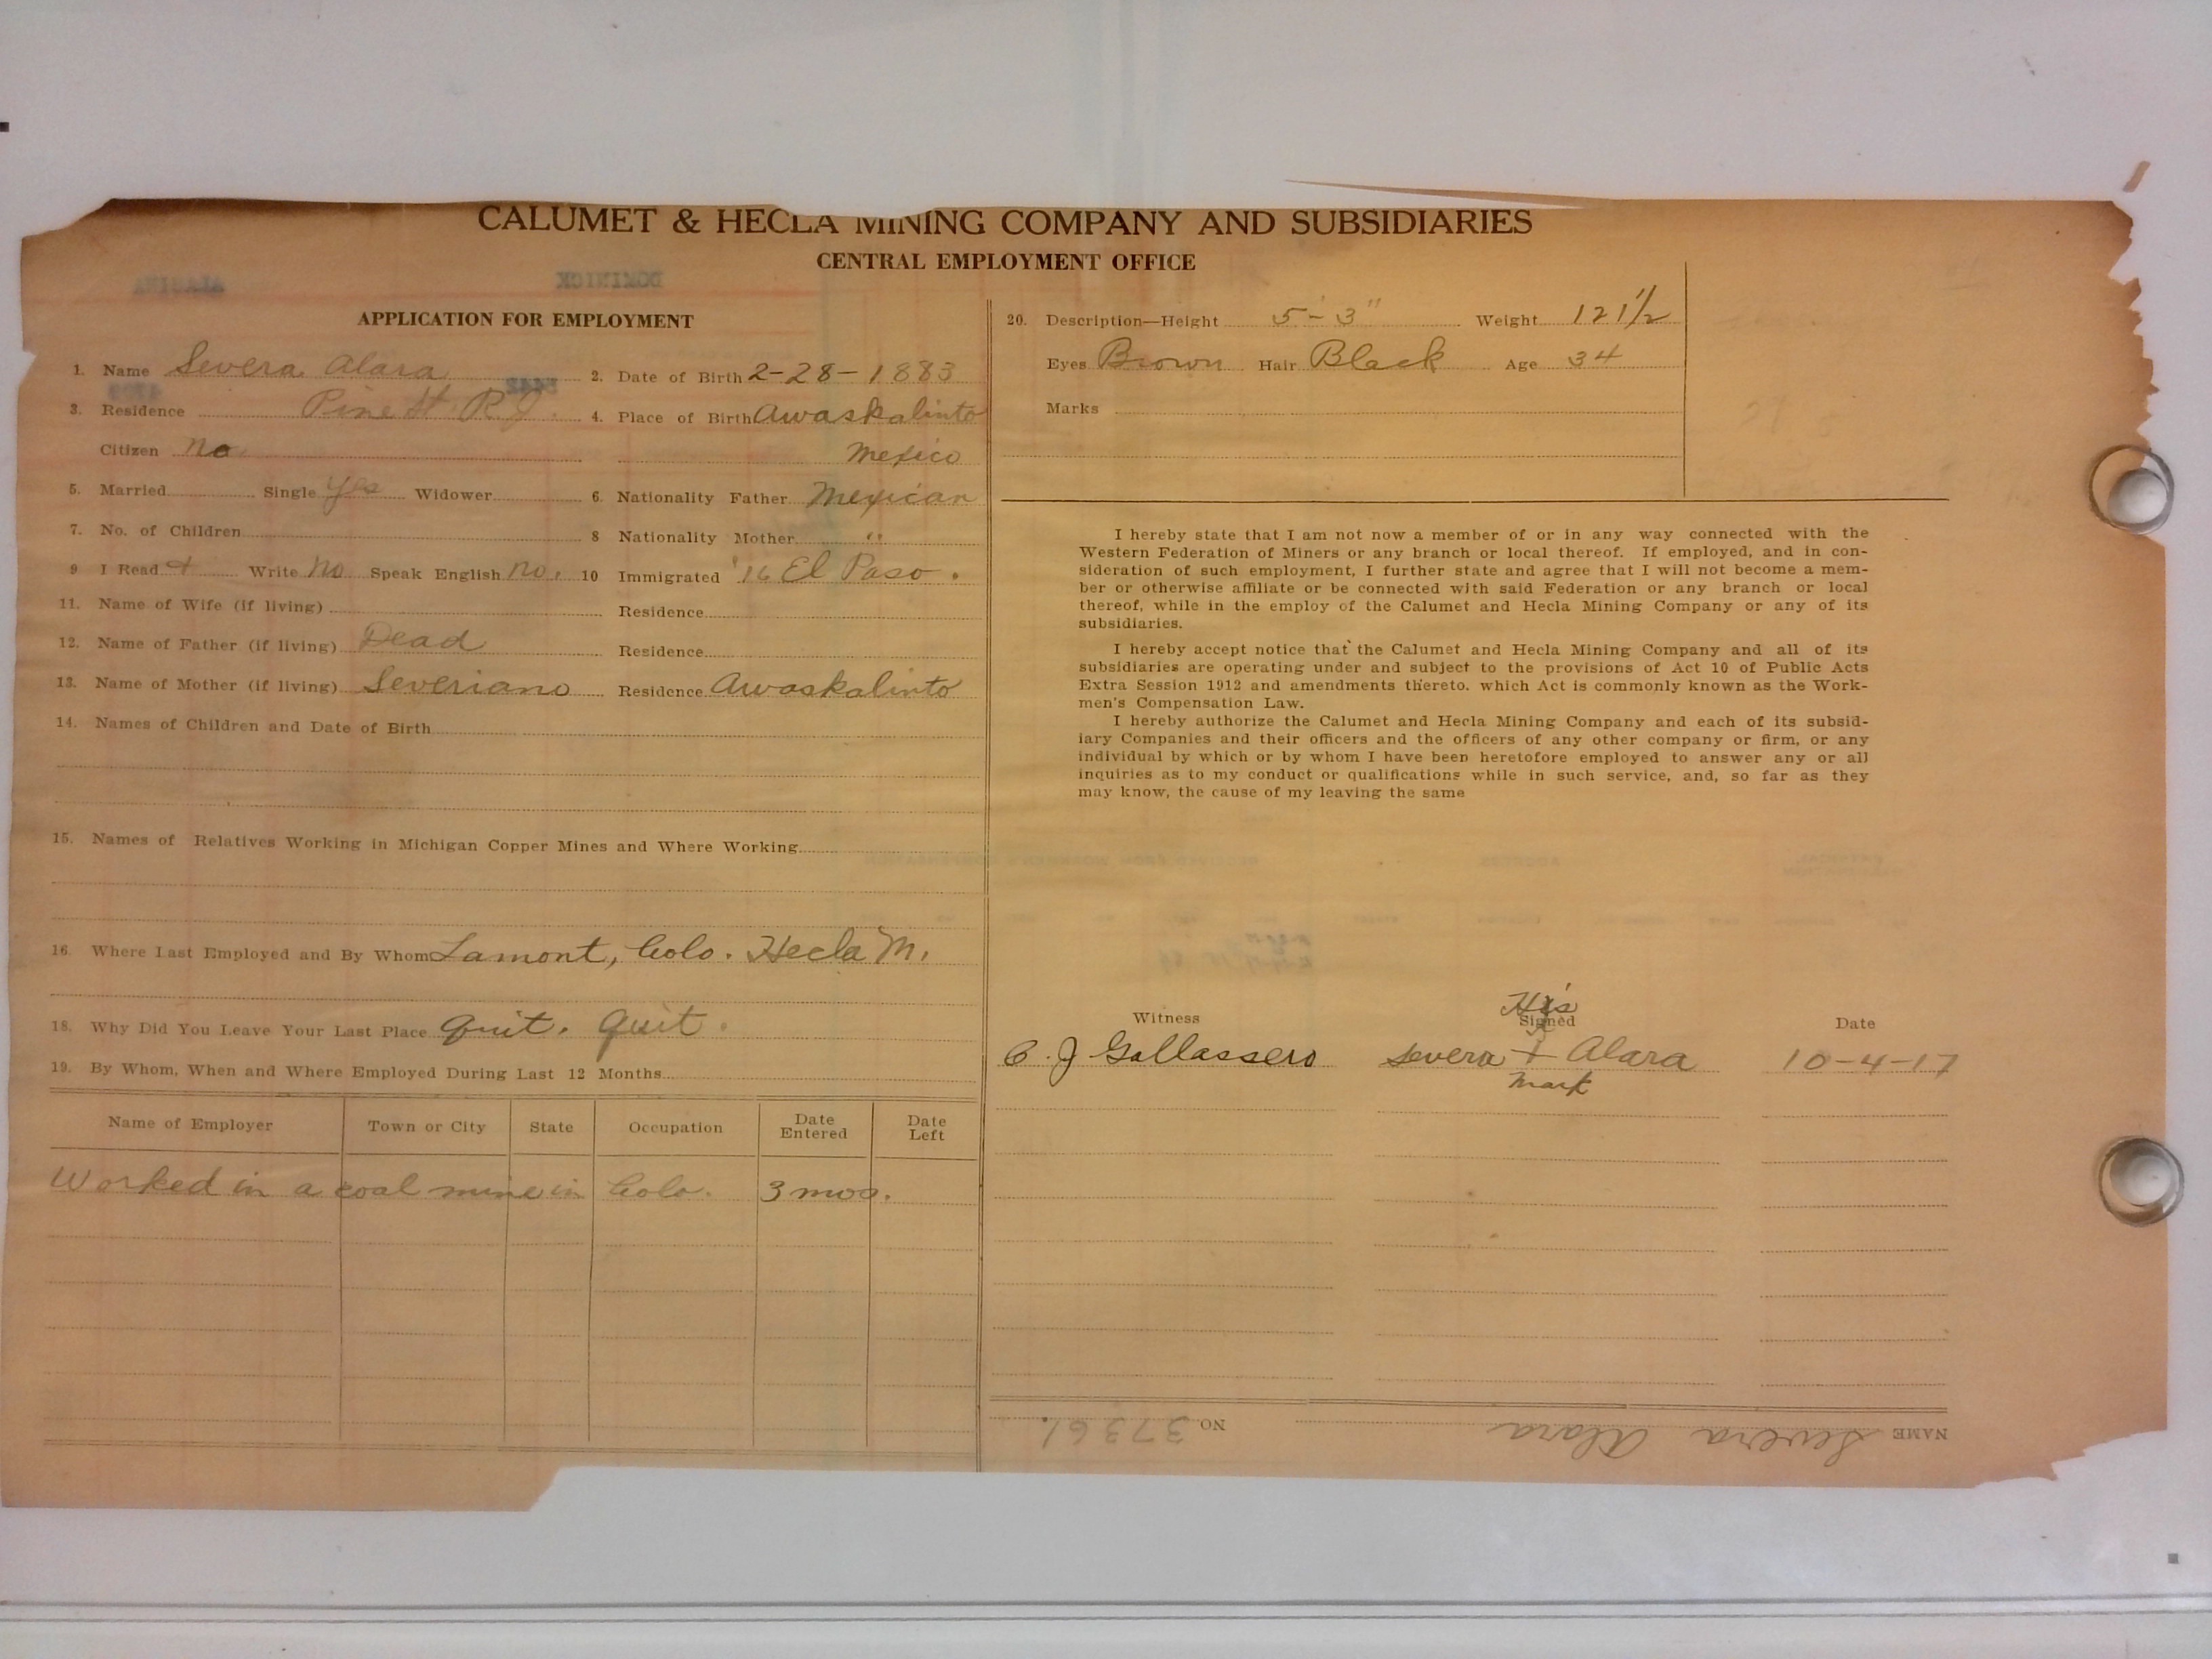 CALUMET & HECLA MINING COMPANY AND SUBSIDIARIES
CENTRAL EMPLOYMENT OFFICE
APPLICATION FOR EMPLOYMENT
1. Name Severa Alara 2. Date of Birth 2-28-1883
3. Residence Pine St. R.J. 4. Place of Birth Awaskalinto
Citizen No Mexico
5. Married Single Yes Widower 6. Nationality Father Mexican
7. No. of Children 8 Nationality Mother "
9 I Read + Write No Speak English No. 10 Immigrated '16 El Paso.
11. Name of Wife (if living) Residence
12. Name of Father (if living) Dead Residence
13. Name of Mother (if living) Severiano Residence Awaskalinto
14. Names of Children and Date of Birth
15. Names of Relatives Working in Michigan Copper Mines and Where Working
16. Where Last Employed and By Whom Lamont, Colo. Hecla M.
18. Why Did You Leave Your Last Place Quit. Quit.
19. By Whom, When and Where Employed During Last 12 Months
Name of Employer Town or City State Occupation Date Entered Date Left
Worked in a coal mine in Colo. 3 mos.
20. Description—Height 5'-3" Weight 121 1/2
Eyes Brown Hair Black Age 34
Marks
I hereby state that I am not now a member of or in any way connected with the
Western Federation of Miners or any branch or local thereof. If employed, and in con-
sideration of such employment, I further state and agree that I will not become a mem-
ber or otherwise affiliate or be connected with said Federation or any branch or local
thereof, while in the employ of the Calumet and Hecla Mining Company or any of its
subsidiaries.
I hereby accept notice that the Calumet and Hecla Mining Company and all of its
subsidiaries are operating under and subject to the provisions of Act 10 of Public Acts
Extra Session 1912 and amendments thereto. which Act is commonly known as the Work-
men's Compensation Law.
I hereby authorize the Calumet and Hecla Mining Company and each of its subsid-
iary Companies and their officers and the officers of any other company or firm, or any
individual by which or by whom I have been heretofore employed to answer any or all
inquiries as to my conduct or qualifications while in such service, and, so far as they
may know, the cause of my leaving the same
His
Witness Signed Date
C. J Gallassero Severa + Alara 10-4-17
Mark
NAME Severa Alara NO 37361.